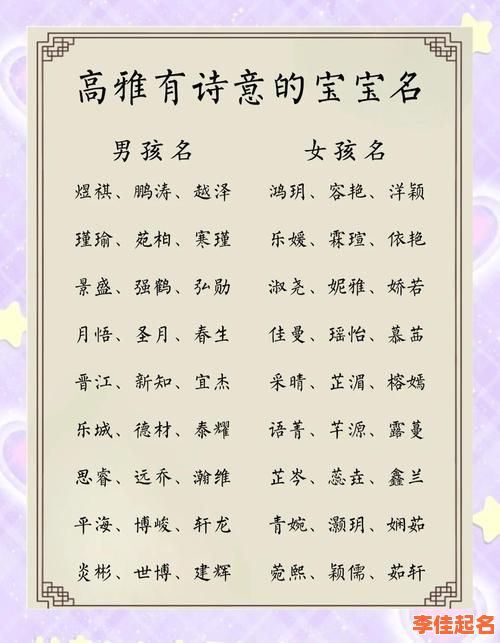 高雅有诗意的宝宝名
男孩名 女孩名
煜祺、鹏涛、越泽 鸿玥、容艳、洋颖
瑾瑜、苑柏、寒瑾 乐媛、霖瑄、依艳
景盛、强鹤、弘勋 淑尧、妮雅、娇若
月悟、圣月、春生 佳曼、瑶怡、慕茁
晋江、新知、宜杰 采晴、芷湄、榕嫣
乐城、德材、泰耀 语菁、芊源、露蔓
思睿、远乔、瀚维 芷岑、蕊垚、鑫兰
平海、博峻、轩龙 青婉、灏玥、娴茹
炎彬、世博、建辉 菀熙、颖儒、茹轩
李佳起名